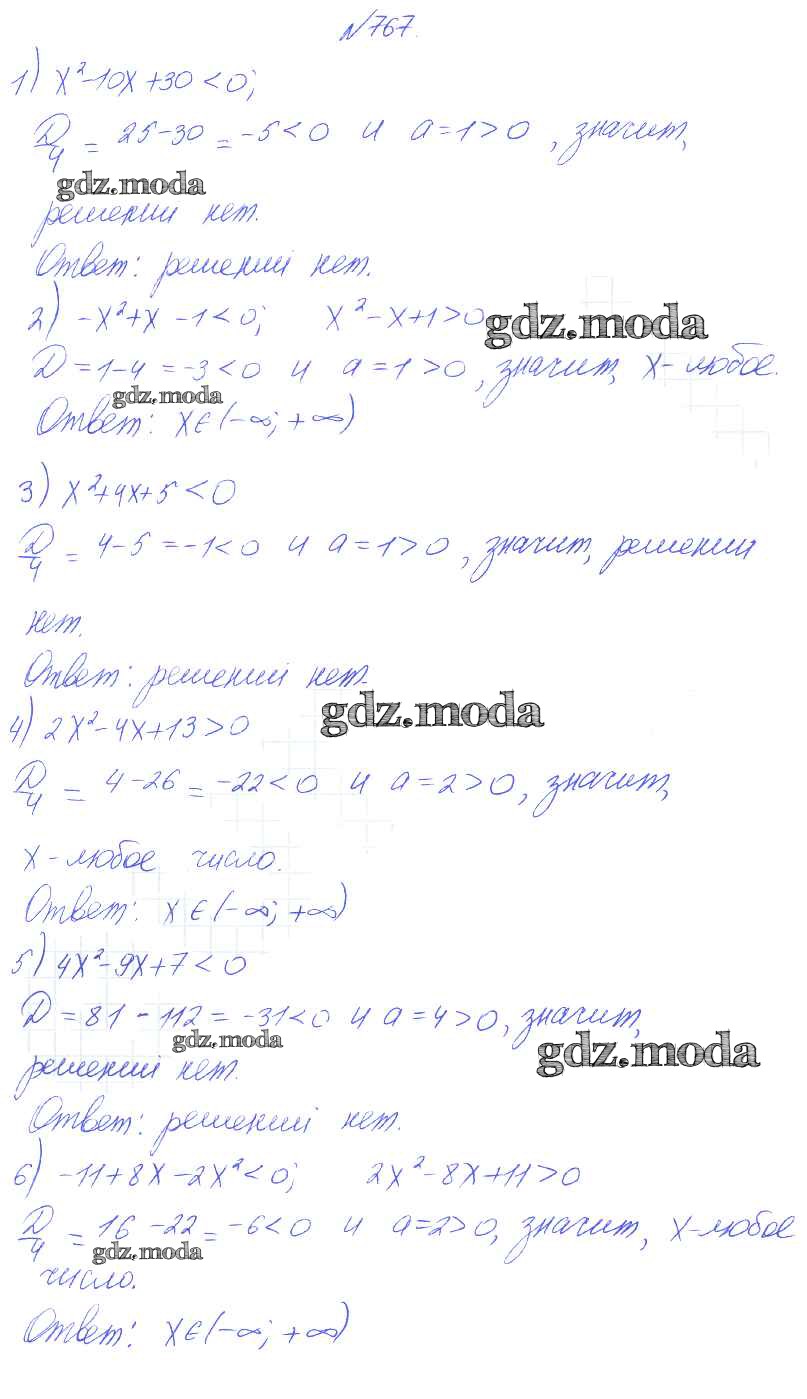 №767.
1) x²-10x+30<0;
D/4 = 25-30 = -5<0 и a=1>0, значит,
gdz.moda
решений нет.
Ответ: решений нет.
2) -x²+x-1<0; x²-x+1>0
gdz.moda
D=1-4=-3<0 и a=1>0, значит, x-любое.
gdz.moda
Ответ: x∈(-∞; +∞)
3) x²+4x+5<0
D/4 = 4-5=-1<0 и a=1>0, значит, решений
нет.
Ответ: решений нет.
gdz.moda
4) 2x²-4x+13>0
D/4 = 4-26 = -22<0 и a=2>0, значит,
x-любое число.
Ответ: x∈(-∞; +∞)
5) 4x²-9x+7<0
D=81-112=-31<0 и a=4>0, значит,
gdz.moda
gdz.moda
решений нет.
Ответ: решений нет.
6) -11+8x-2x²<0; 2x²-8x+11>0
D/4 = 16-22=-6<0 и a=2>0, значит, x-любое
gdz.moda
число.
Ответ: x∈(-∞; +∞)